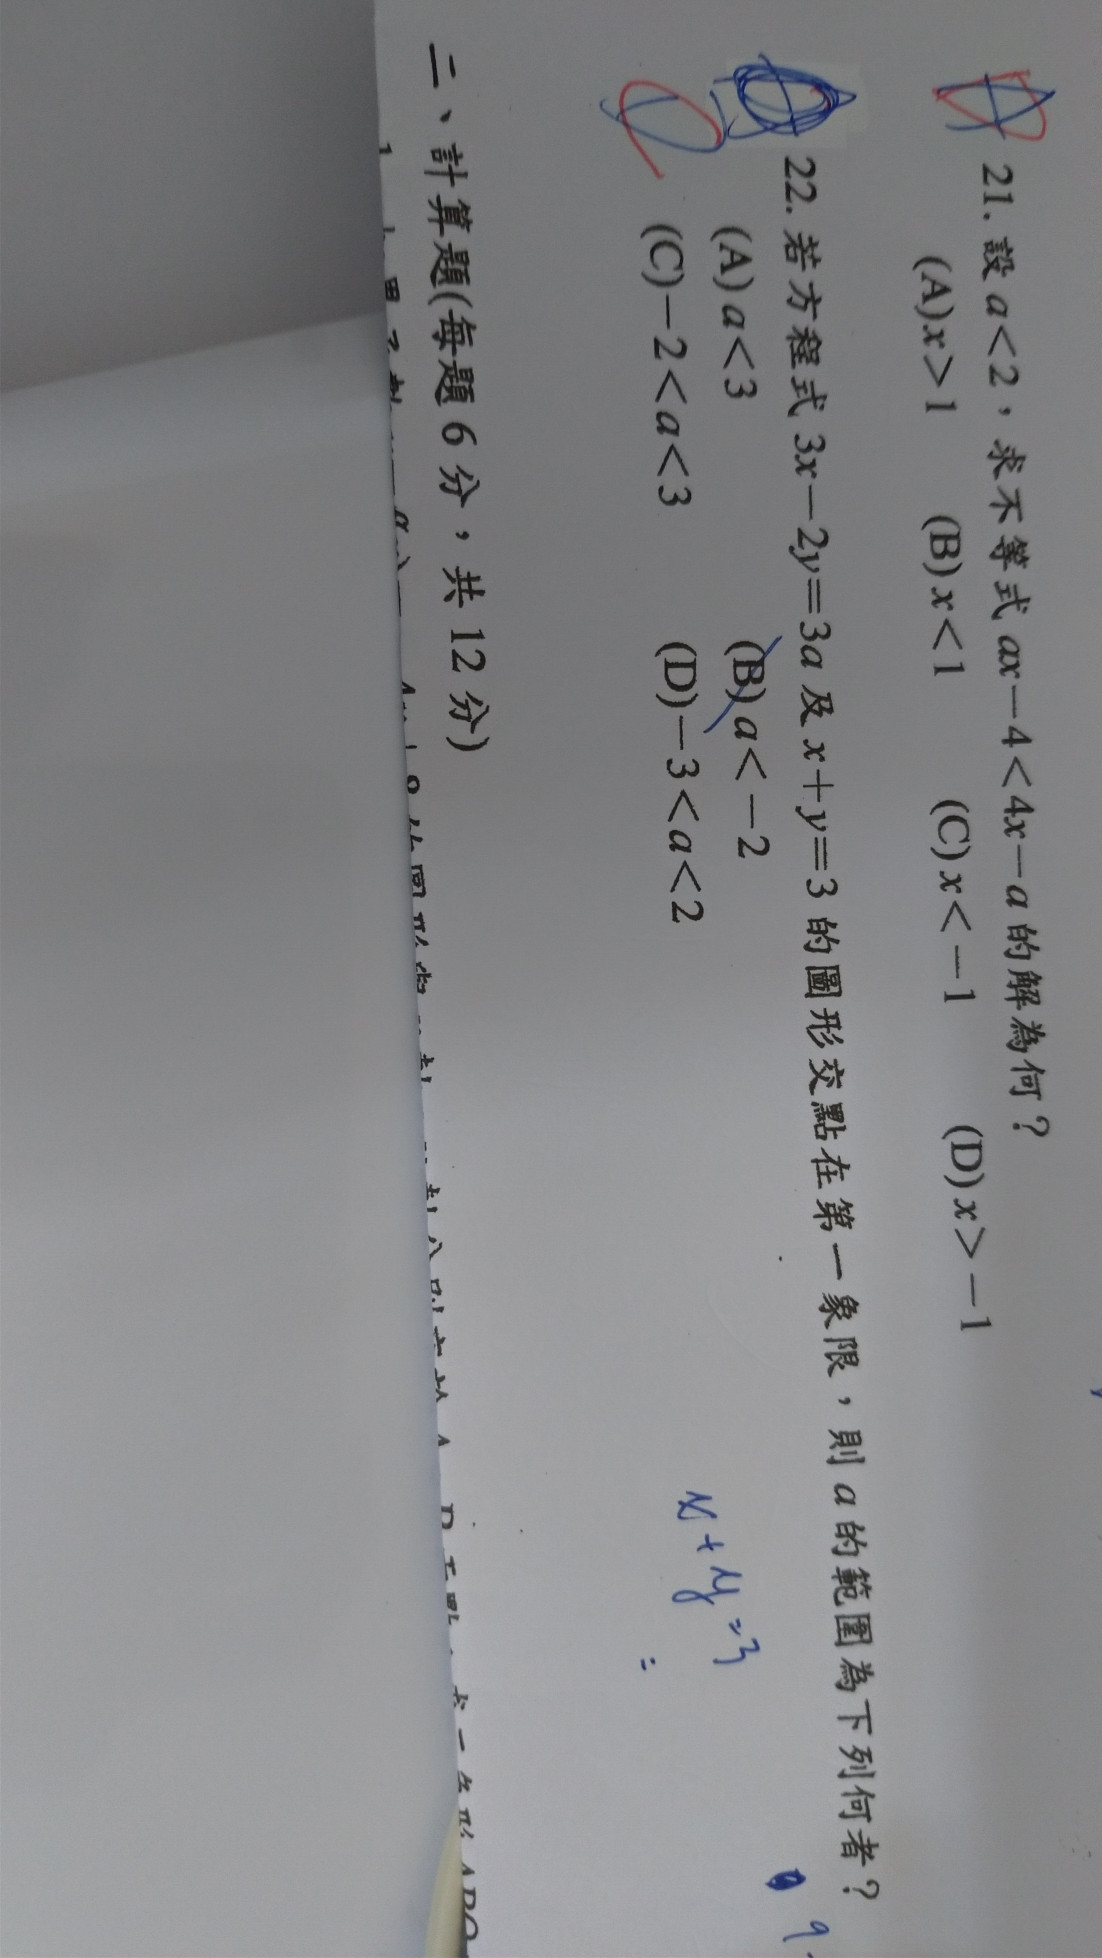 21. 設 a<2，求不等式 ax－4<4x－a 的解為何？
(A) x>1 (B) x<1 (C) x<－1 (D) x>－1
22. 若方程式 3x－2y=3a 及 x+y=3 的圖形交點在第一象限，則 a 的範圍為下列何者？
(A) a<3 (B) a<－2
(C)－2<a<3 (D)－3<a<2
x+y=3
=
二、計算題(每題 6 分，共 12 分)